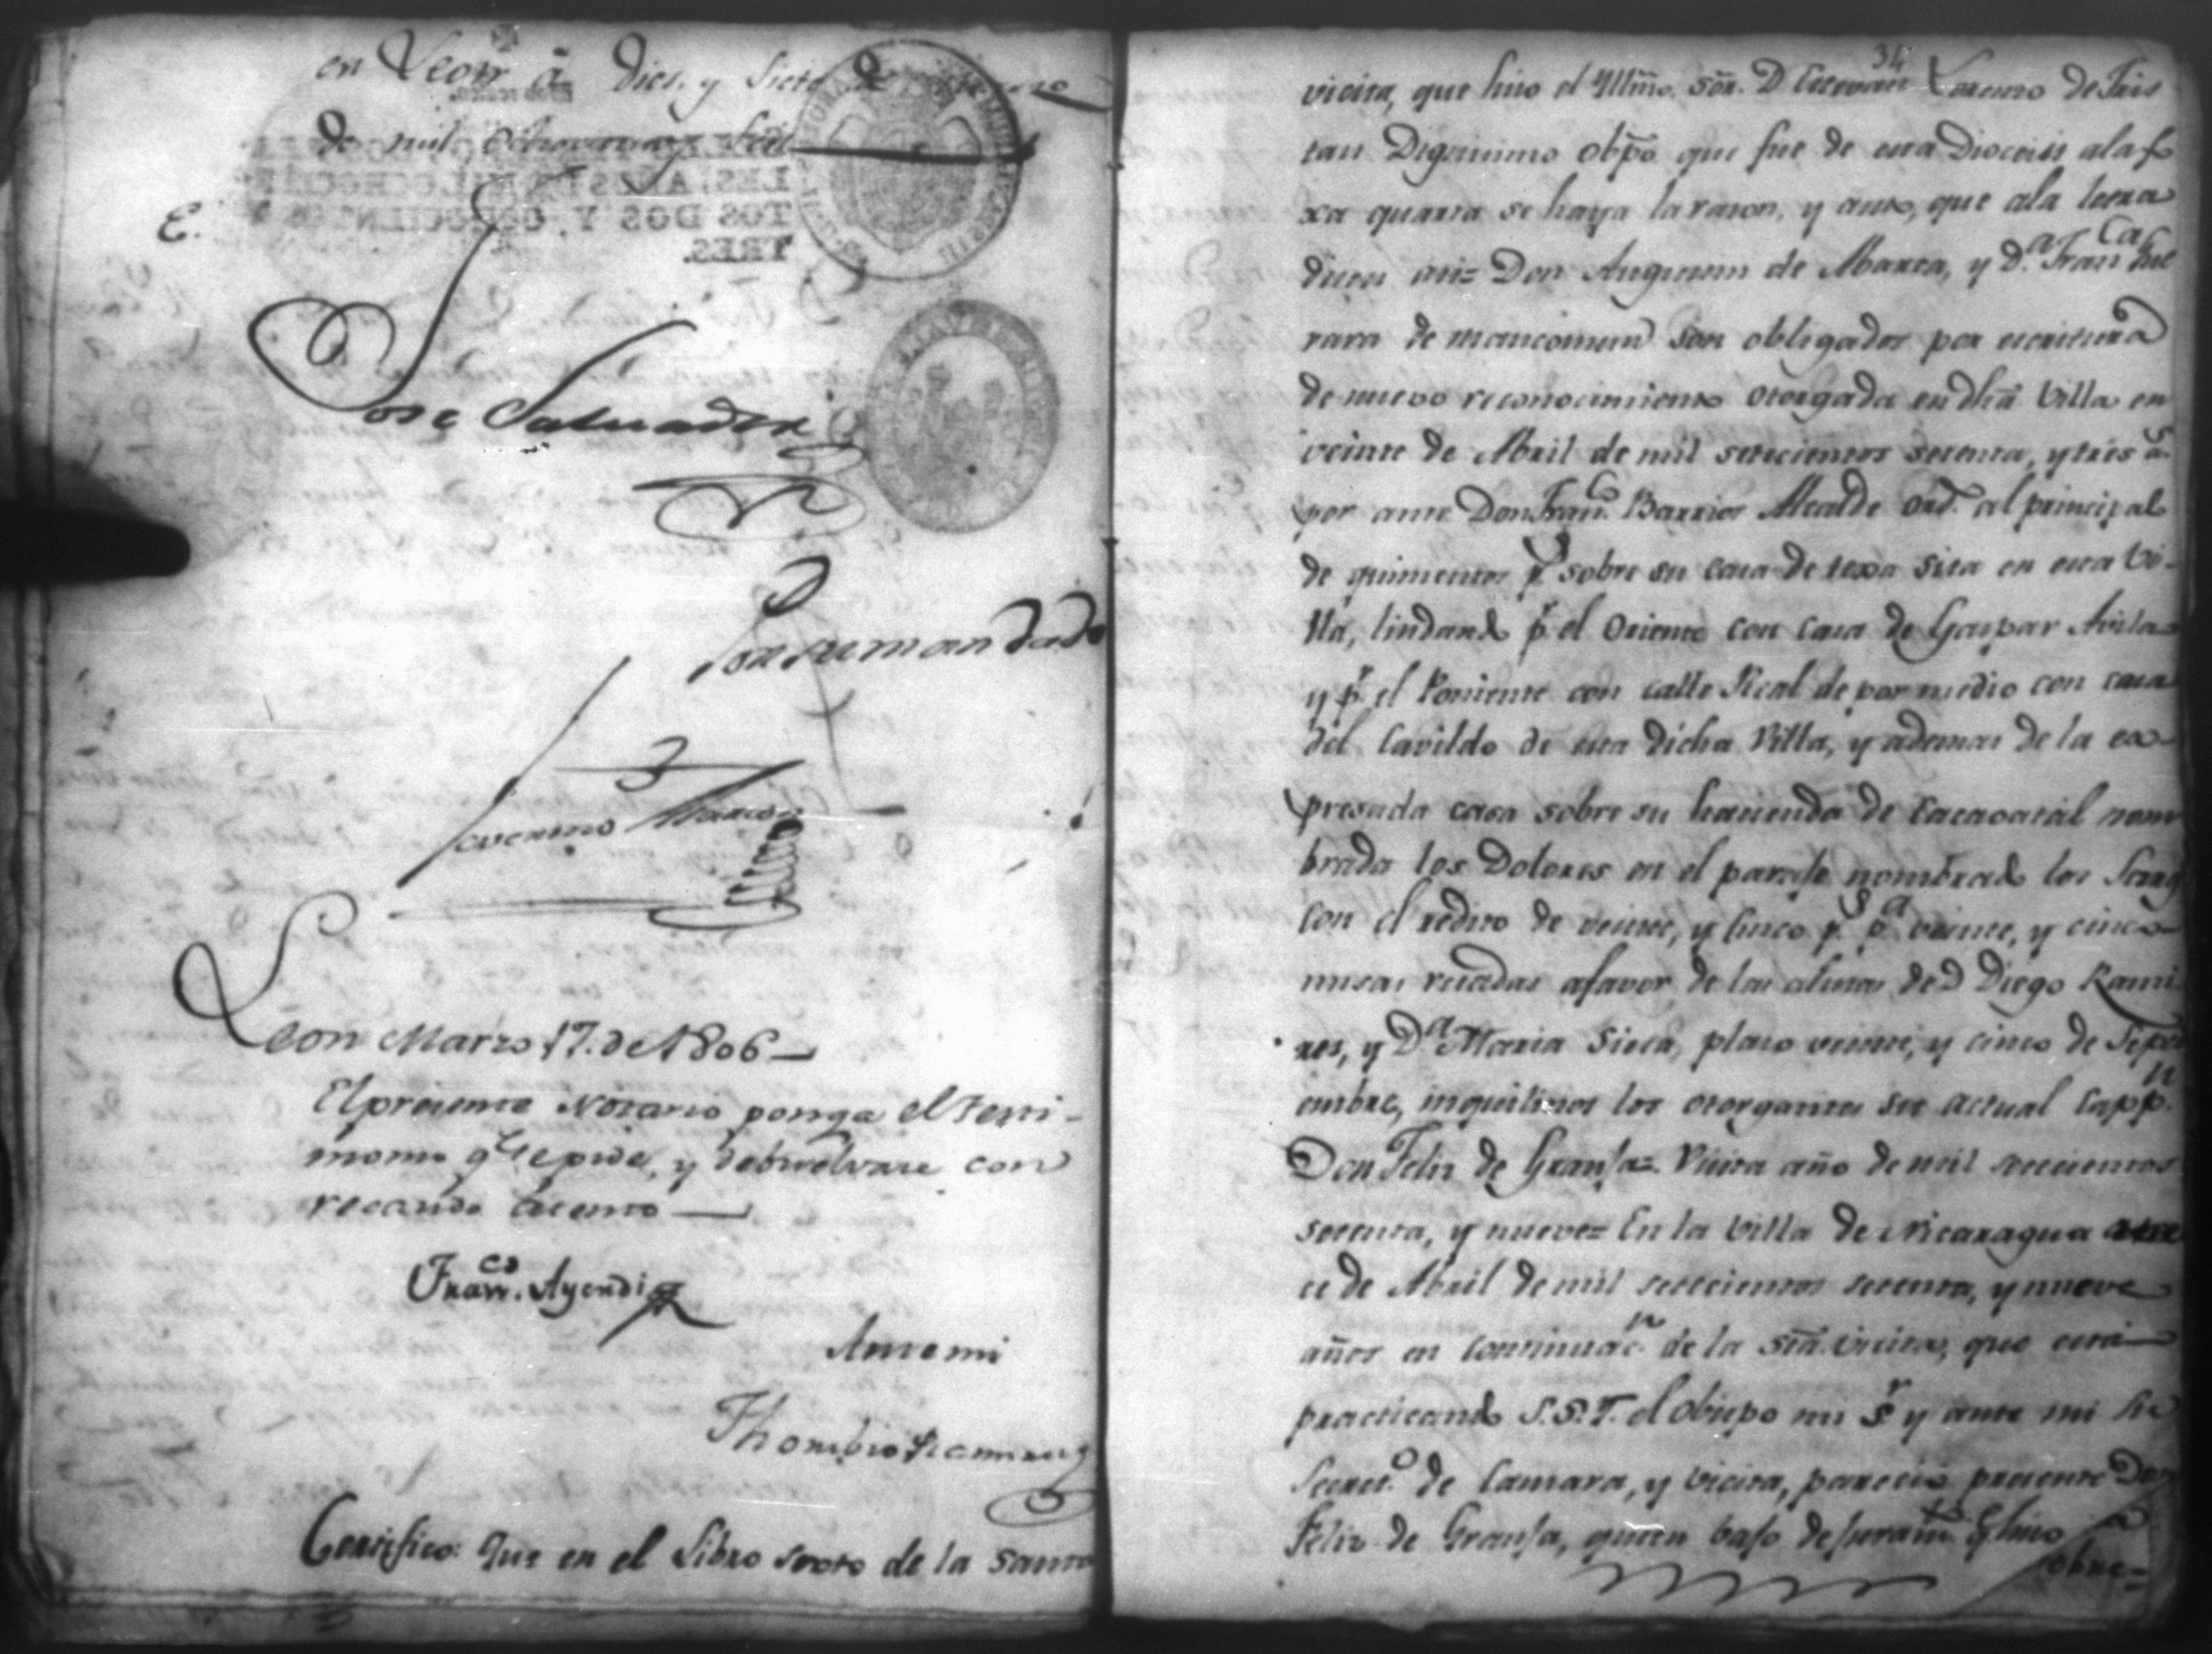 en Leon à dies, y siete de
de mil Ochocientos, y Seis
E.
Jose Salvador
Por su mandado
Severino Marcos
Leon Marzo 17. de 1806
El presente Notario ponga el testi-
monio q.e se pide, y debuelvase con
recaudo atento
Fran.co Ayerdi
Ante mi
Thoribio Ramirez
Certifico: Que en el Libro sexto de la santa
34
vicita, que hiso el Yllmo. Sor. D Estevan Lorenzo de Tris
tan Dignisimo Obpo que fue de esta Diocesis ala fo
xa quarta se haya la rason, y auto, que ala letra
disen asi= Don Augustin de Marta, y D.a Fran.ca
rara de mancomun son obligados por escritura
de nuevo reconocimiento otorgada en dha Villa en
veinte de Abril de mil setecientos setenta, y tres a.s
por ante Don Fran.co Barrios Alcalde ord.o al principal
de quinientos p.s sobre su casa de texa sita en esta Vi-
lla, lindando p.r el Oriente con casa de Gaspar Avila
y p.r el Poniente con calle Real de por medio con casa
del Cavildo de esta dicha Villa, y ademas de la ex-
presada casa sobre su hacienda de Cacaoatal nom
brada los Dolores en el paraje nombrado los
con el redito de veinte, y cinco p.s p.a veinte, y cinco
misas resadas afavor de las almas de D Diego Rami
res, y D.a Maria Siera, plaso veinte, y cinco de Septi
embre, inquilinos los otorgantes su actual Capp.n
Don Felis de Granja= Vicita año de mil setecientos
setenta, y nueve= En la Villa de Nicaragua
ce de Abril de mil setecientos setenta, y nueve
años en continuac.n de la sta. vicita, que está
practicando S.S.Y. el obispo mi S.r y ante mi su
Secret.o de Camara, y Vicita, parecio presente Don
Felis de Granja, quien bajo de juram.to q.e hiso